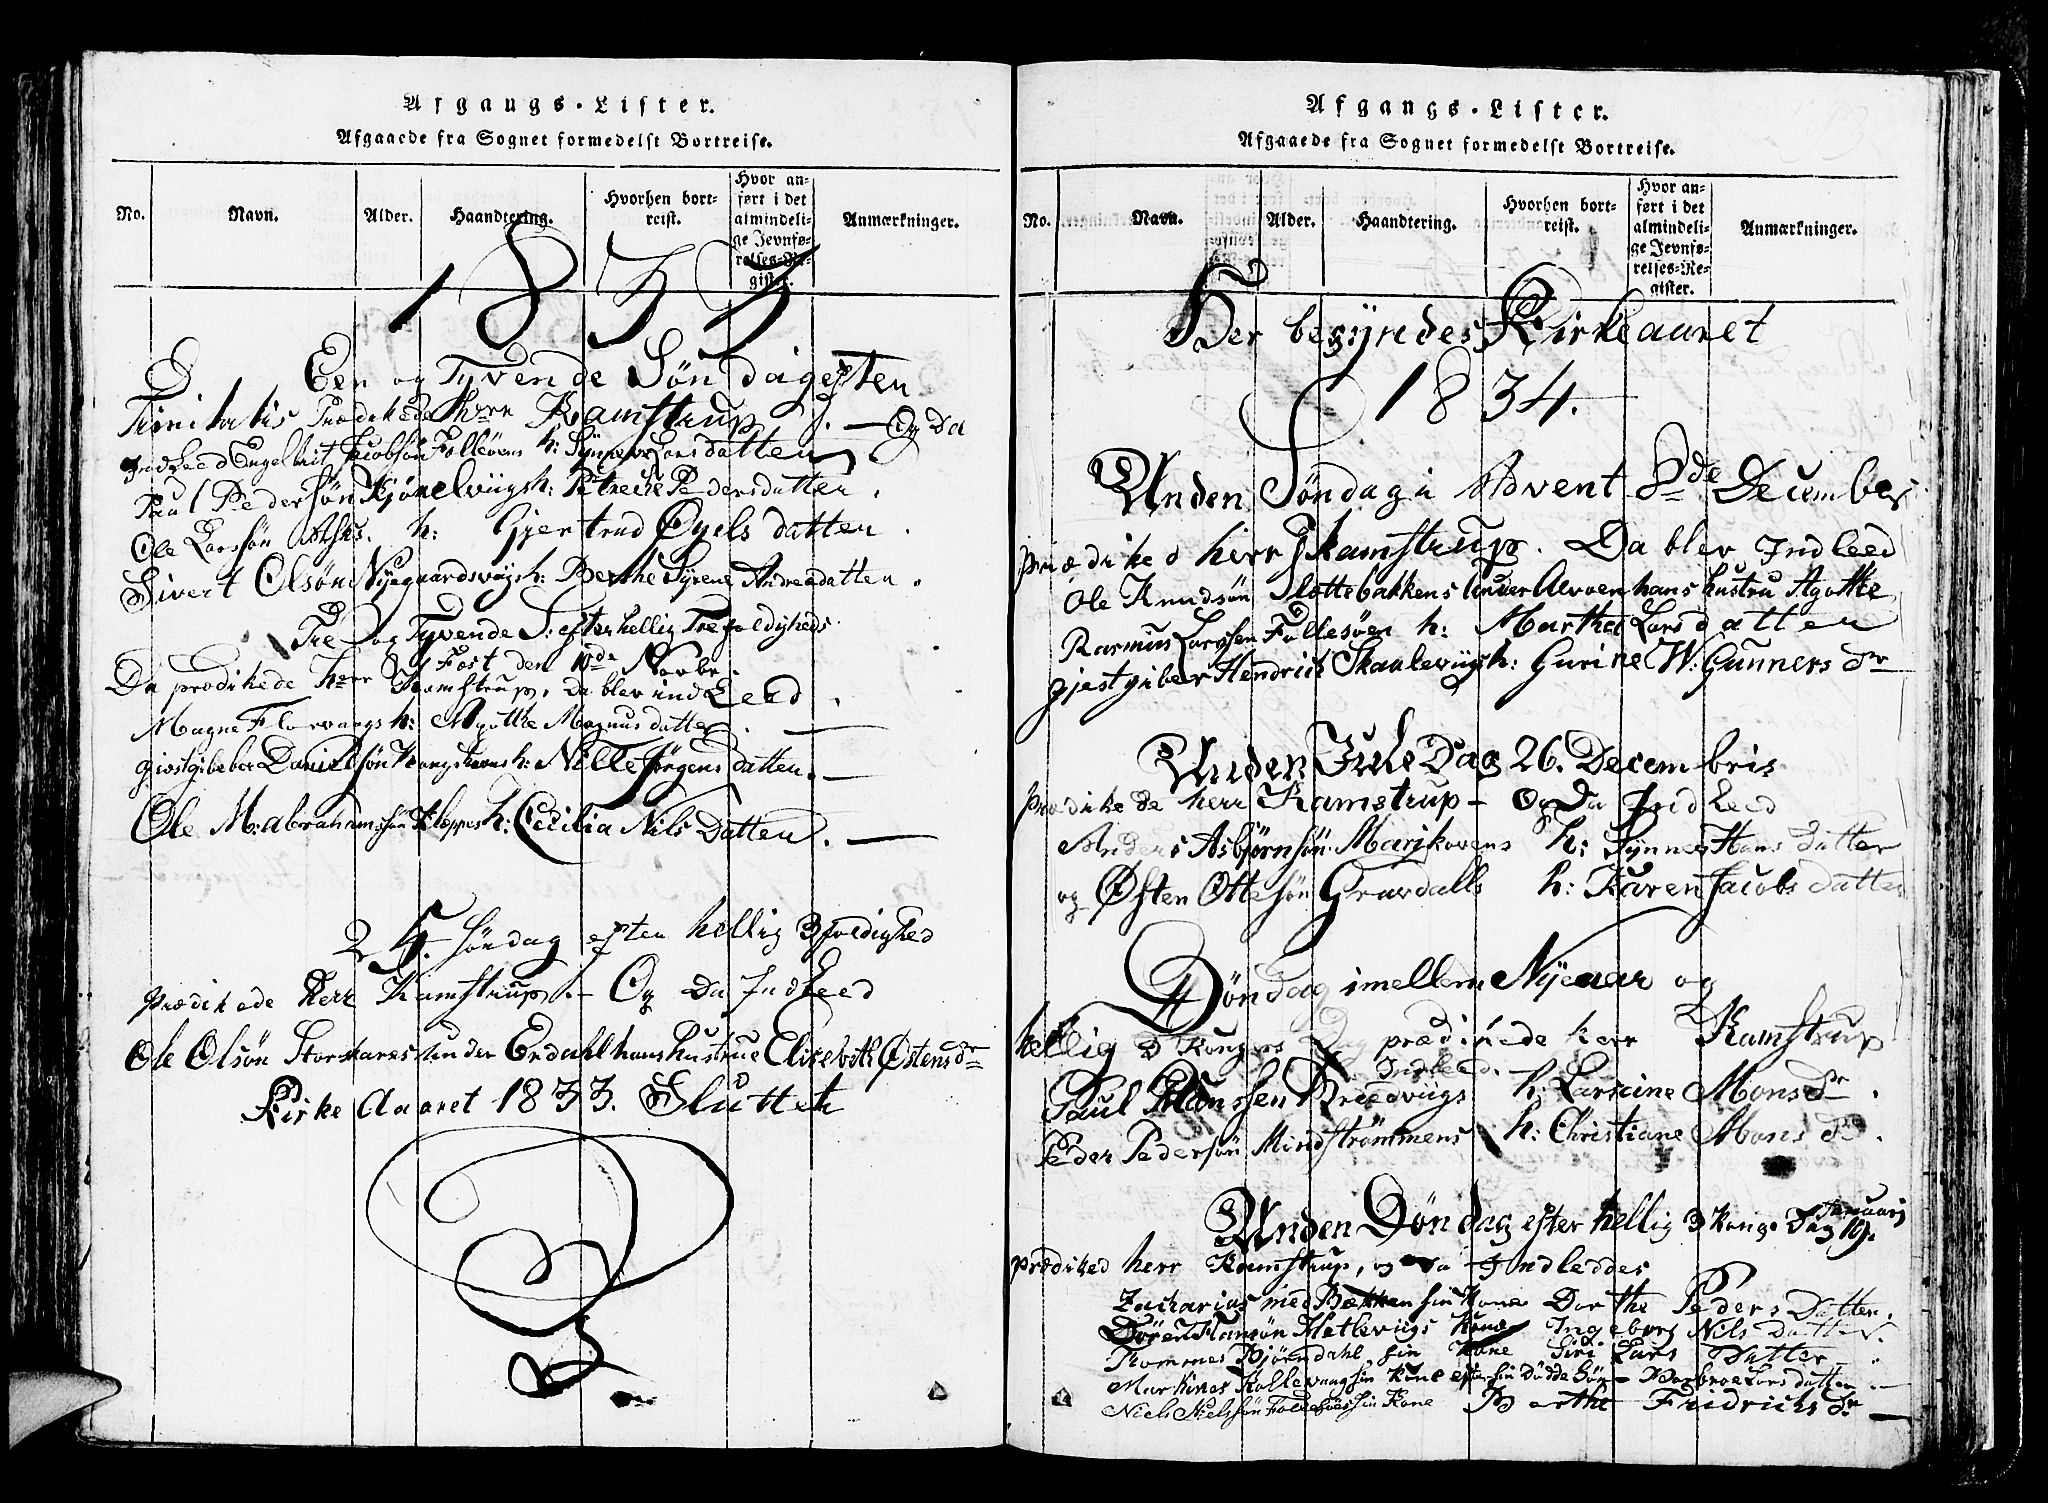 Afgangs-Lister.
Afgaaede fra Sognet formedelst Bortreise.
No.
Navn.
Alder.
Haandtering.
Hvorhen bort-
reist.
Hvor an-
ført i det
almindeli-
ge Jevnfø-
relses-Re-
gister.
Anmærkninger.
1833
Een og Tyvende Søndag eften
Trinitatis Prædikede Herr Kamstrup. — Og da
IndLeed Engelbrit Jacobsøn Follesøens h: Synneve Larsdatten
Paul Pedersøn Kjønelviigs h: Petreche Pedersdatten.
Ole Larssøn Asks. h: Gjertrud Øyels datten.
Sivert Olsøn Nyegaardsviigs h: Berthe Syrene Andreadatten.
Tre og Tyvende S: efter hellig Trefoldigheds
Fest den 10de Novbr.
Da prædikede Herr Kamstrup, Da blev indLeed
Magne Florvaags h: Agothe Magnusdatter. —
giestgibeber Danielsøn h: Nille Jørgens datten. —
Ole M: abrahamssøn Kleppes h: Cecilia Nils Datten. —
25. Søndag eften hellig 3foldighed
Prædikede Herr Kamstrup. — Og Da IndLeed
Ole Olsøn Storskares under Erdahl hans Hustrue Elisebeth Østensdr
Kirke Aaaret 1833. Sluttet
Afgangs-Lister.
Afgaaede fra Sognet formedelst Bortreise.
No.
Navn.
Alder.
Haandtering.
Hvorhen bort-
reist.
Hvor an-
ført i det
almindeli-
ge Jevnfø-
relses-Re-
gister.
Anmærkninger.
Her begyndes Kirkeaaret
1834.
Anden Søndag i Advent 8de December
Prædiked herr Kamstrup. Da blev Indleed
Ole Knudsøn Slettebakkens under Alvoen hans hustru Agothe
Rasmus Larssen Follesøen h: Marthe Larsdatten
gjestgiber Hendrich Skaaleviigs h: Gurine W. Gunners dr
Anden Jule Dag 26. Decembris
Prædikede herr Kamstrup — Og Da IndLeed
Anders Asbjørnsøn Marikovens h: Synne Hans Datter
og Østen Ottesøn Gravdalls h: Karen Jacobs datter
Søndag imellem Nyeaar og
hellig 3 Kongers Dag prædikede herr Kamstrup
Indleed.
Paul Monssen Bredviigs h: Larsine Monsdr.
Peder Pedersøn Mindstrømmens h: Christiane Mons dr.
Anden Søndag efter hellig 3 Konge Dag 19. Januarj
Prædiked herr Kamstrup, og da Indleddes
Zacharias med Bekken sin Kone Dorthe Peders Datten.
Søren Hansøn Hetleviigs Kone Ingeborg Nils datter.
Thommes Bjørndahl sin Kone Siri Lars Datter.
Markines Kollevaag sin Kone efter sin Dødde Søn — Barbroe Larsdatten. —
Niels Nielssøn Follesøes sin Kone Berthe Fridrichs dr —